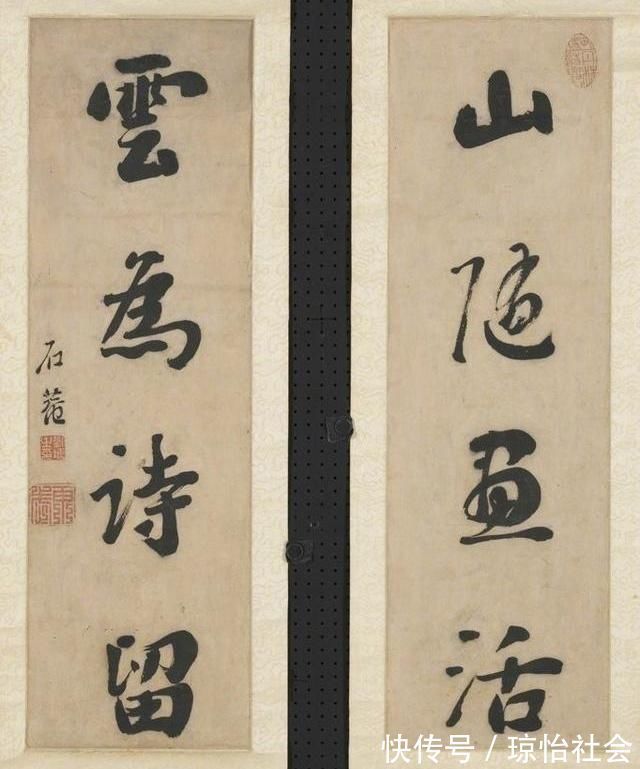 山隨畫活
雲為詩留
石菴
快传号 / 琼怡社会